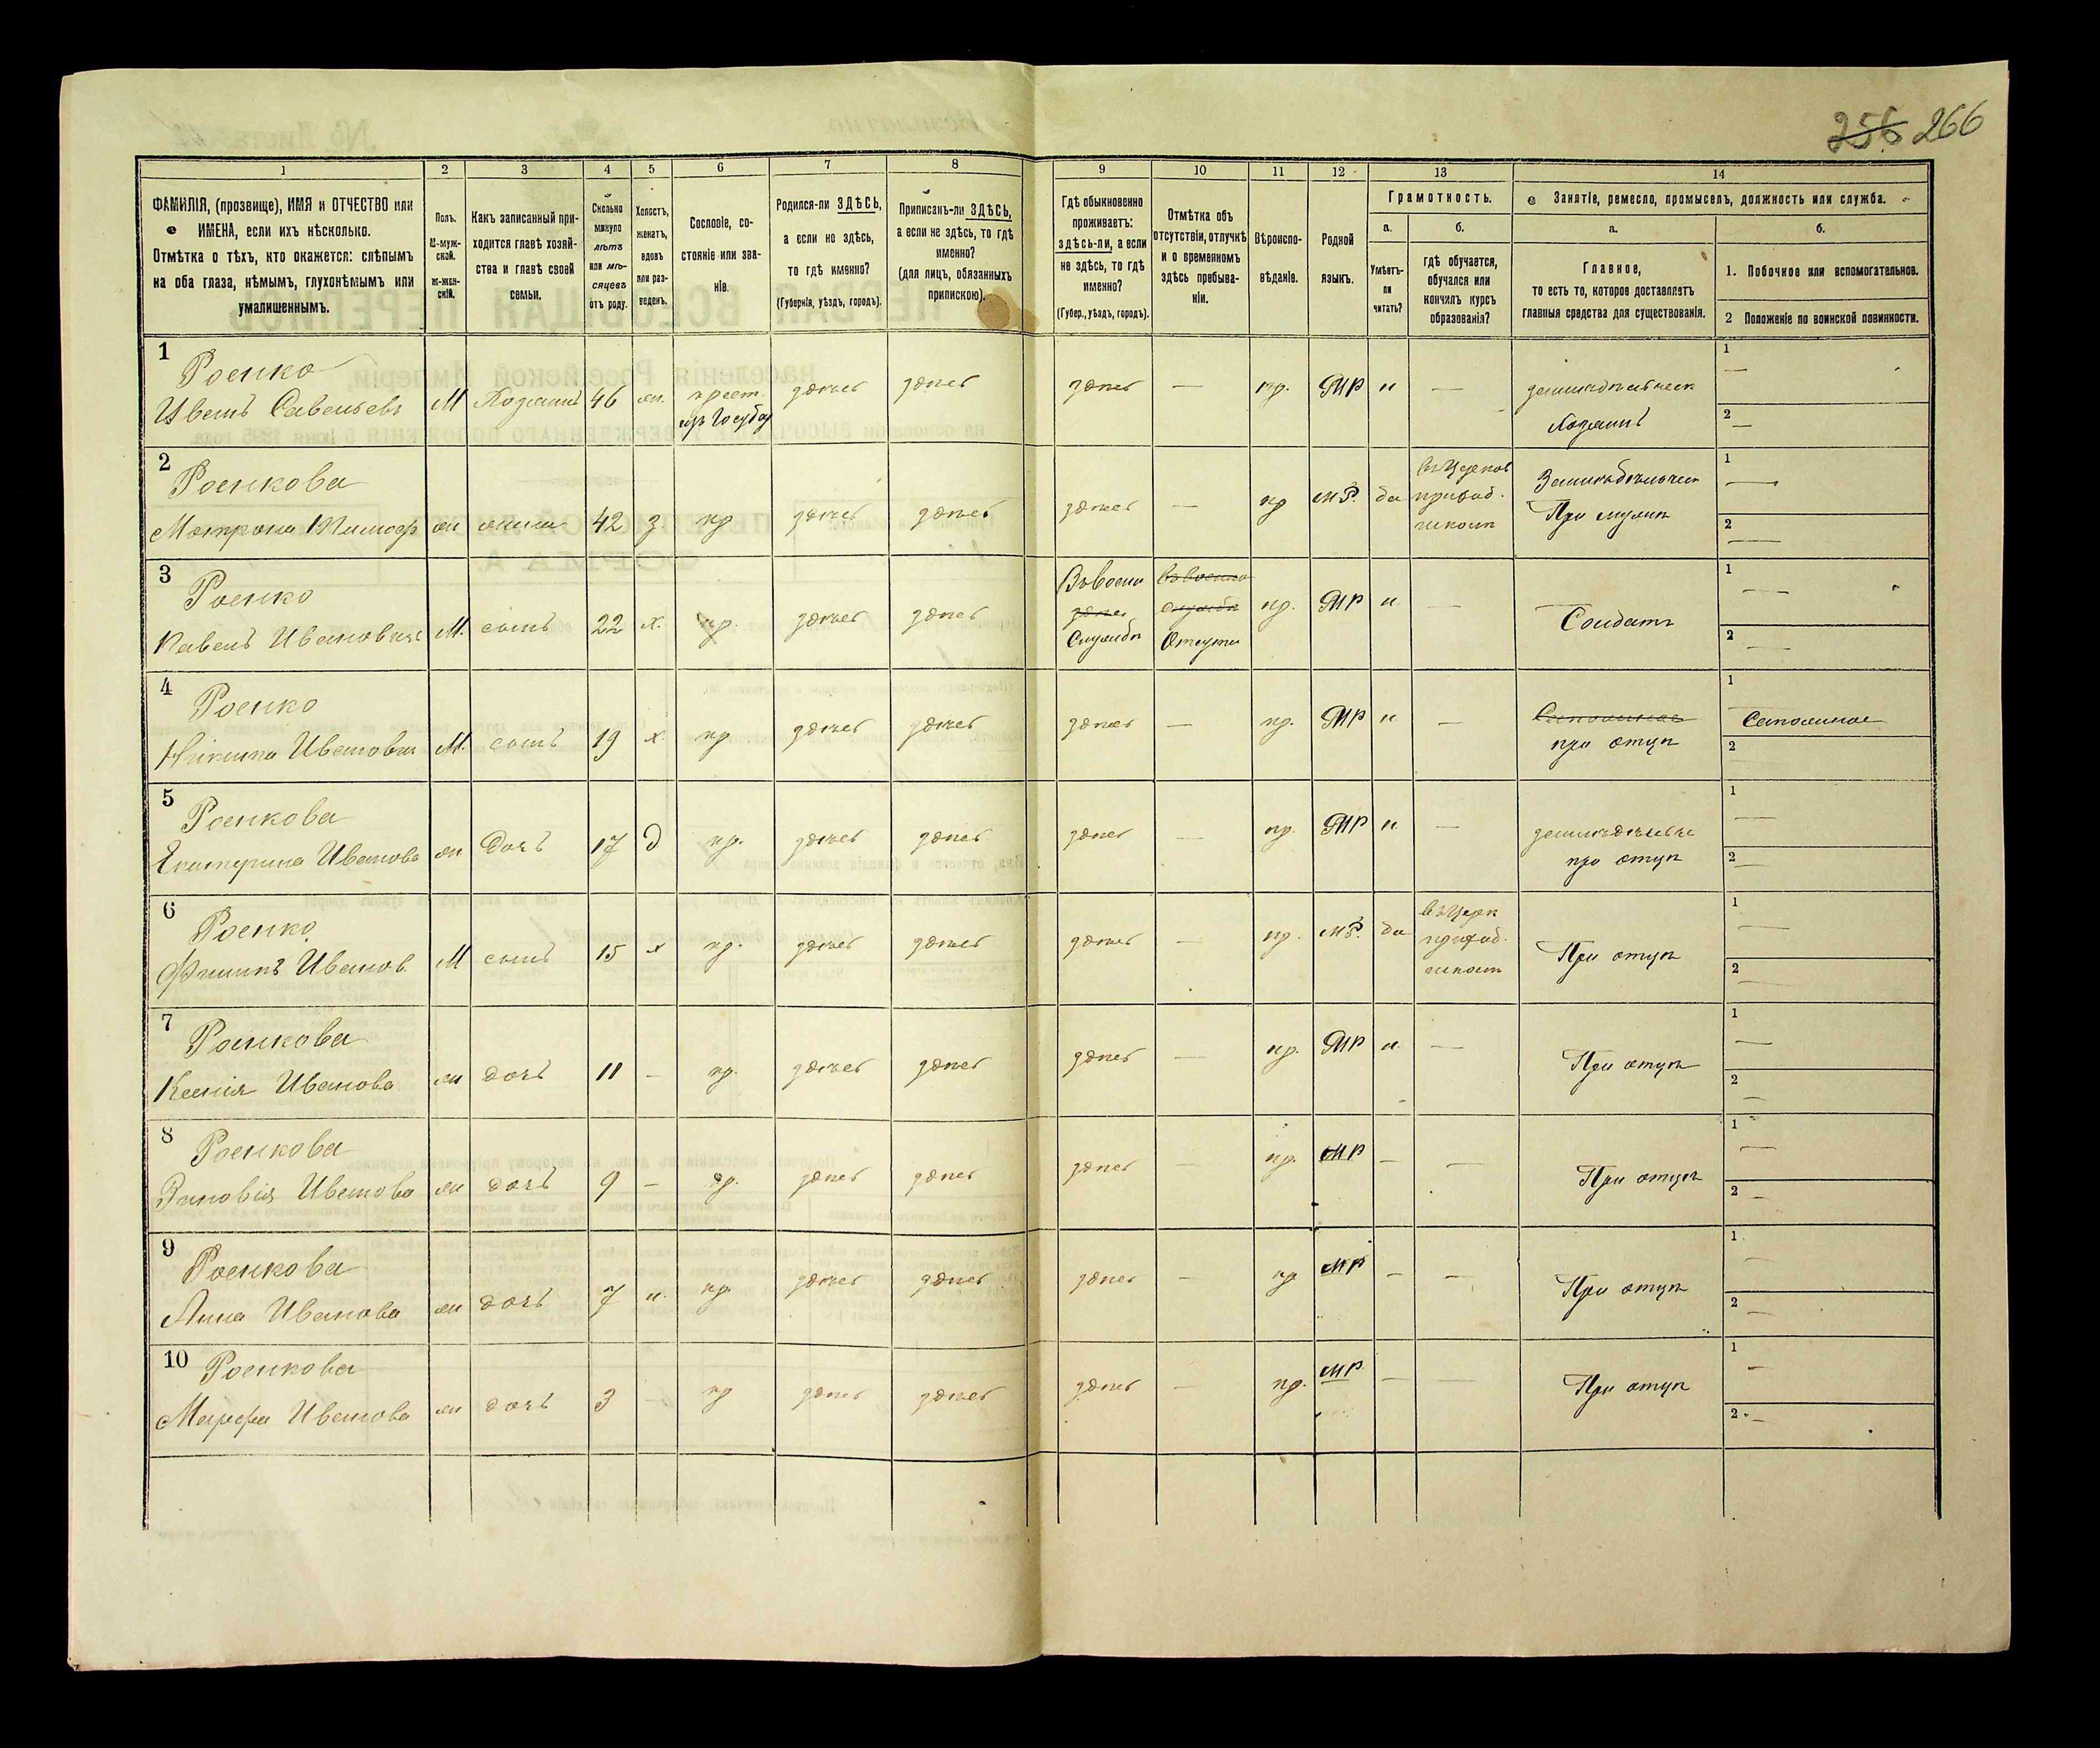 256 266
1 2 3 4 5 6 7 8 9 10 11 12 13 14
ФАМИЛІЯ, (прозвище), ИМЯ и ОТЧЕСТВО или
ИМЕНА, если ихъ нѣсколько.
Отмѣтка о тѣхъ, кто окажется: слѣпымъ
на оба глаза, нѣмымъ, глухонѣмымъ или
умалишеннымъ.
Полъ.
М-муж-
ской.
Ж-жен-
скій.
Какъ записанный при-
ходится главѣ хозяй-
ства и главѣ своей
семьи.
Сколько
минуло
лѣтъ
или мѣ-
сяцевъ
отъ роду.
Холостъ,
женатъ,
вдовъ
или раз-
веденъ.
Сословіе, со-
стояніе или зва-
ніе.
Родился-ли ЗДѢСЬ,
а если не здѣсь,
то гдѣ именно?
(Губернія, уѣздъ, городъ).
Приписанъ-ли ЗДѢСЬ,
а если не здѣсь, то гдѣ
именно?
(для лицъ, обязанныхъ
припискою).
Гдѣ обыкновенно
проживаетъ:
здѣсь-ли, а если
не здѣсь, то гдѣ
именно?
(Губер., уѣздъ, городъ).
Отмѣтка объ
отсутствіи, отлучкѣ
и о временномъ
здѣсь пребыва-
ніи.
Вѣроиспо-
вѣданіе.
Родной
языкъ.
Грамотность.
а.
Умѣетъ-
ли
читать?
б.
гдѣ обучается,
обучался или
кончилъ курсъ
образованія?
Занятіе, ремесло, промыселъ, должность или служба.
а.
Главное,
то есть то, которое доставляетъ
главныя средства для существованія.
б.
1. Побочное или вспомогательное.
2 Положеніе по воинской повинности.
1
Роенко
Иванъ Савельевъ М Хозяинъ 46 жн. крест. здѣсь здѣсь здѣсь — пр. МР н —
Хозяинъ
1 —
2 —
2
Роенкова
Матрона Тимоф жн жена 42 з. кр здѣсь здѣсь здѣсь — пр МР. да
При мужѣ
1 —
2 —
3
Роенко
Павелъ Ивановичъ М. сынъ 22 х. кр. здѣсь здѣсь
Службѣ
пр. МР н. — Солдатъ
1 —
2 —
4
Роенко
Никита Иванович М. сынъ 19 х. кр здѣсь здѣсь здѣсь — пр. МР н. —
при отцѣ
1
2
5
Роенкова
Екатерина Иванова жн дочь 17 д кр. здѣсь здѣсь здѣсь — пр. МР н. —
при отцѣ
1 —
2 —
6
Роенко
Филипъ Иванов. М сынъ 15 х кр. здѣсь здѣсь здѣсь — пр. МР. да
При отцѣ
1 —
2 —
7
Роенкова
Ксенія Иванова жн дочь 11 — кр. здѣсь здѣсь здѣсь — пр. МР н. —
При отцѣ
1 —
2 —
8
Роенкова
Зиновія Иванова жн дочь 9 — кр. здѣсь здѣсь здѣсь — пр. МР — —
При отцѣ
1 —
2 —
9
Роенкова
Анна Иванова жн дочь 7 н. кр. здѣсь здѣсь здѣсь — пр МР — —
При отцѣ
1 —
2 —
10
Роенкова
Марфа Иванова жн дочь 3 — кр здѣсь здѣсь здѣсь — пр. МР. — —
При отцѣ
1 —
2 —